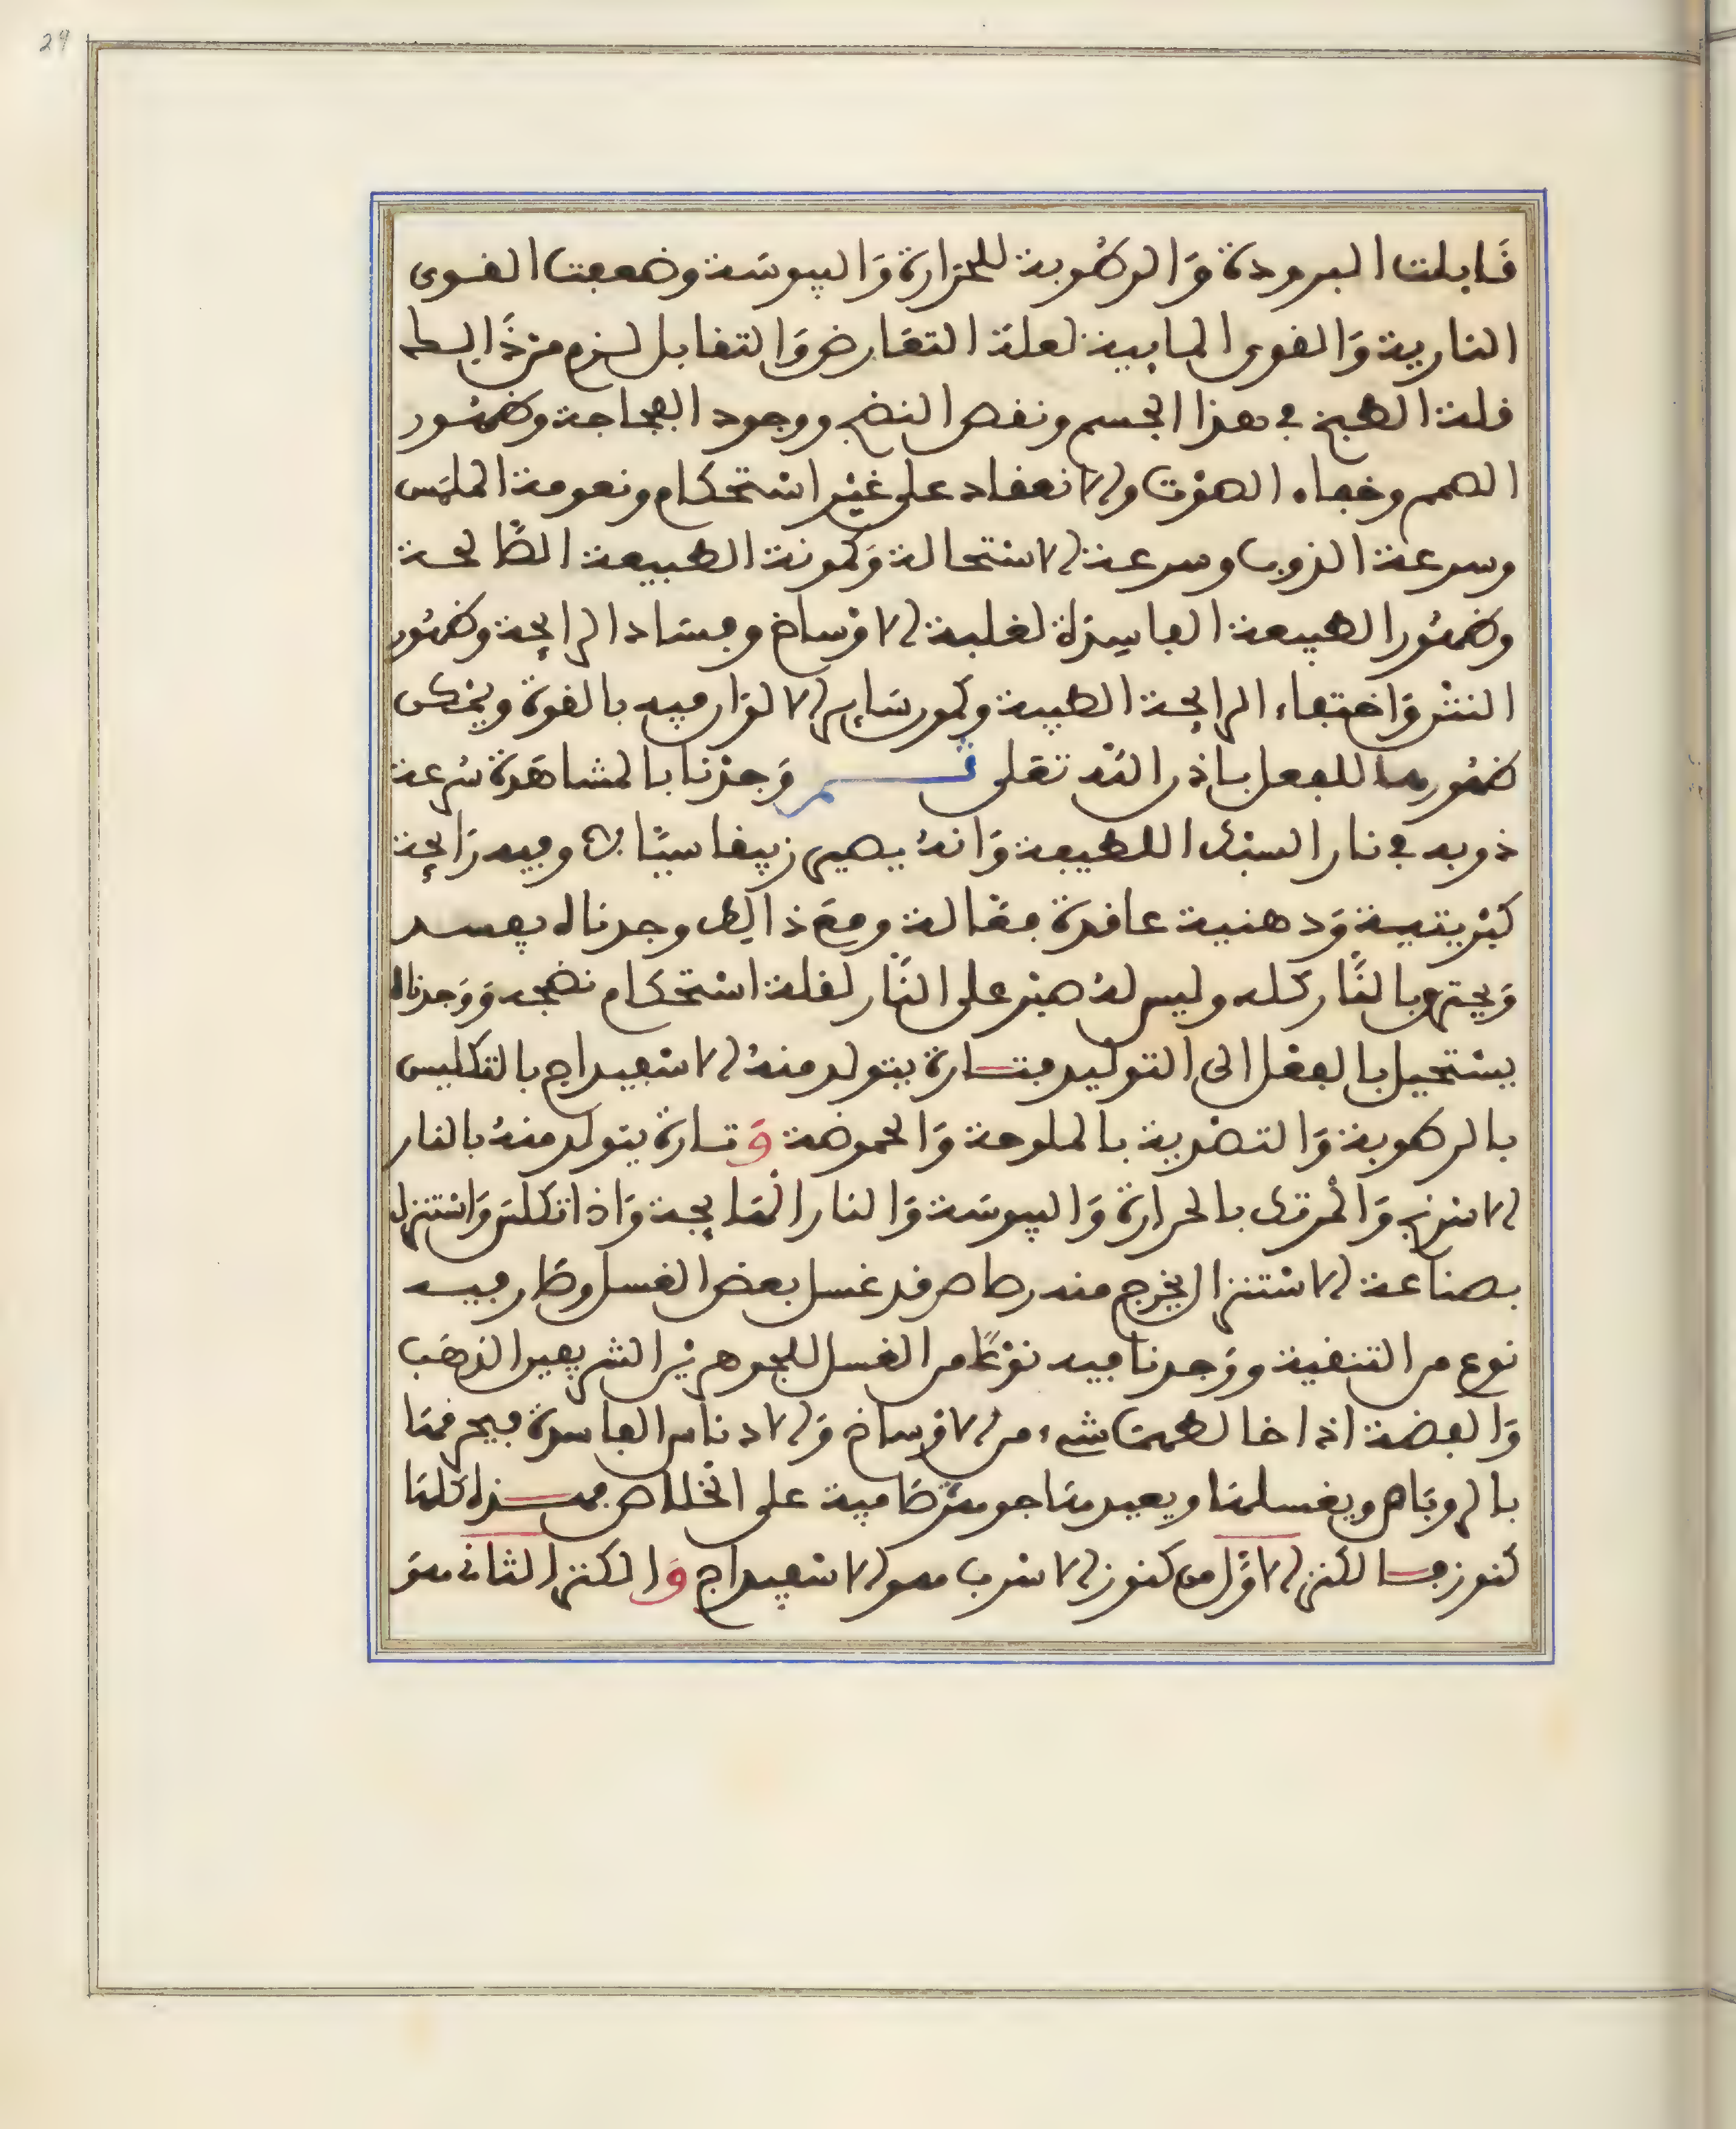 29
قابلت البرودة والرطوبة للحرارة واليبوسة وضعفت القوى
النارية والقوى المايية لعلة التعارض والتقابل لزم من ذالك
قلة الطبخ في هذا الجسم ونقص النضج ووجود الفجاجة وظهور
الصمم وخفاء الصوت والانعقاد على غير استحكام ونعومة الملمس
وسرعة الذوب وسرعة الاستحالة وكمونة الطبيعة الصالحة
وظهور الطبيعة الفاسدة لغلبة الاوساخ وفساد الرايحة وظهور
النتن واختفاء الرايحة الطيبة وكمون ساير الالوان فيه بالقوة ويمكن
ظهورها للفعل باذن الله تعلى ثم وجدنا بالمشاهدة سرعة
ذوبه في نار السبك اللطيفة وانه يصير زيبقا سيالا وفيه رايحة
كبريتية ودهنية عاقدة فعالة ومع ذالك وجدناه يفسد
ويحترق بالنار كله وليس له صبر على النار لقلة استحكام نضجه ووجدناه
يستحيل بالفعل الى التوليد فتارة يتولد منه الاسفيداج بالتكليس
بالرطوبة والتضرية بالملوحة والحموضة وتارة يتولد منه بالنار
الاسرنج والمرتك بالحرارة واليبوسة والنار الهايجة واذا تكلس واستنزل
بصناعة الاستنزال يخرج منه رصاص قد غسل بعض الغسل وصار فيه
نوع من التنقية ووجدنا فيه نوعا من الغسل للجوهرين الشريفين الذهب
والفضة اذا خالطهما شيء من الاوساخ والادناس الفاسدة فيحرقها
بالروباص ويغسلها ويعيدها جوهرة صافية على الخلاص فهذه كلها
كنوز فالكنز الاول من كنوز الاسرب هو الاسفيداج والكنز الثاني هو